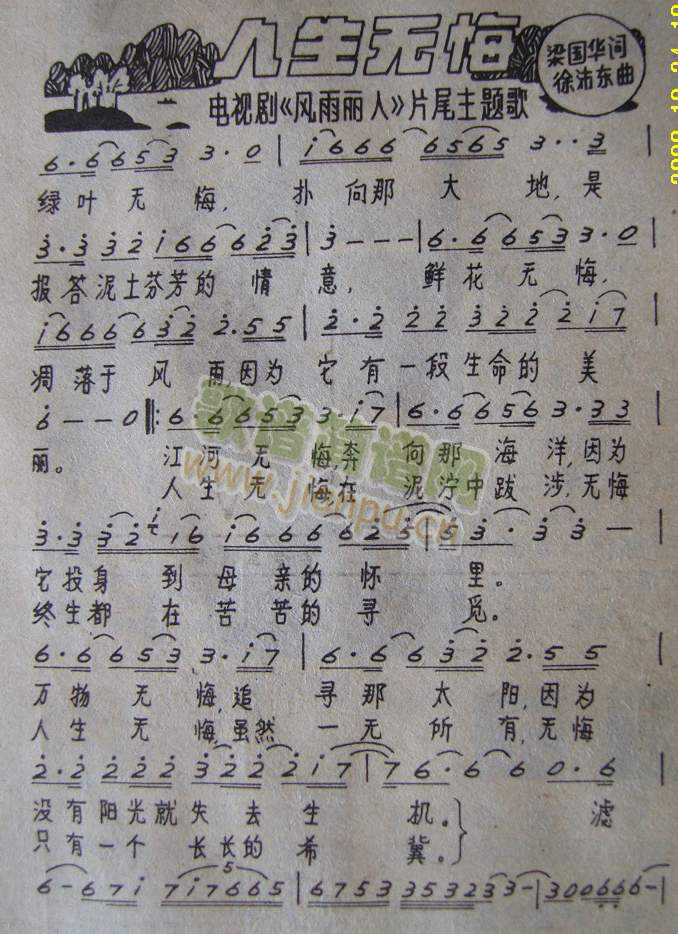 人生无悔
梁国华词
徐沛东曲
电视剧《风雨丽人》片尾主题歌
6·6 6 5 3 3·0 | i 6 6 6 6 5 6 5 3··3 |
绿叶无悔，扑向那大地，是
3·3 3 2 i 6 6 6 2 3 | 3 - - - | 6·6 6 5 3 3·0 |
报答泥土芬芳的情意，鲜花无悔，
i 6 6 6 6 3 2 2·5 5 | 2·2 2 2 3 2 2 2 i 7 |
凋落于风雨因为它有一段生命的美
6 - - 0 ‖: 6·6 6 5 3 3·i 7 | 6·6 6 5 6 3·3 3 |
丽。江河无悔，奔向那海洋，因为
人生无悔在泥泞中跋涉，无悔
3·3 3 2 i 6 i 6 6 6 6 2 5 | 5 3·3 3 - |
它投身到母亲的怀里。
终生都在苦苦的寻觅。
6·6 6 5 3 3·i 7 | 6·6 6 3 2 2·5 5 |
万物无悔，追寻那太阳，因为
人生无悔，虽然一无所有，无悔
2·2 2 2 2 3 2 2 2 i 7 | 7 6·6 6 0·6 |
没有阳光就失去生机。} 滤
只有一个长长的希冀。
6 - 6 7 i 7 i 7 6 6 5 | 6 7 5 3 3 5 3 2 3 3 - | 3 0 0 6 6 6 - |
歌谱简谱网
www.jianpu.cn